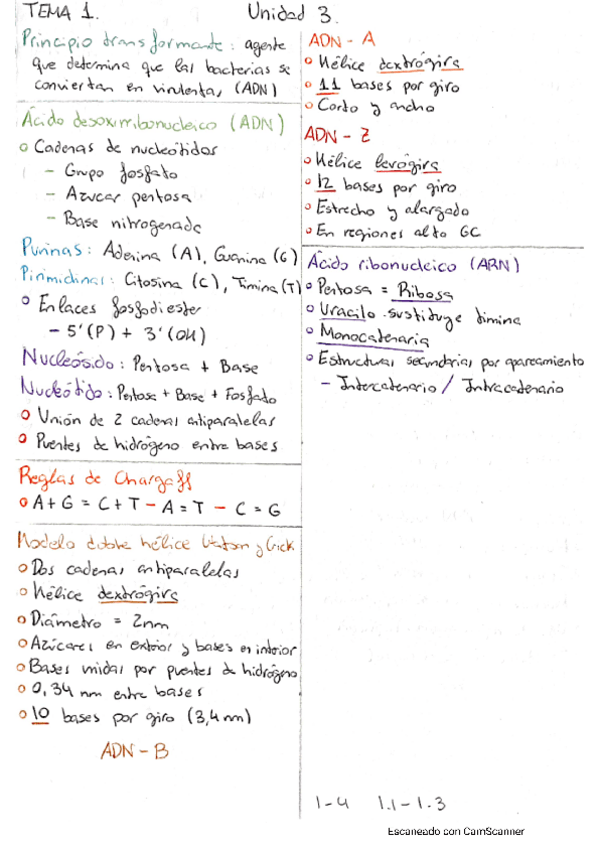 TEMA 1.
Unidad 3.
Principio transformante: agente
que determina que las bacterias se
conviertan en virulentas (ADN)
Ácido desoxirribonucleico (ADN)
Cadenas de nucleótidos
- Grupo fosfato
- Azucar pentosa
- Base nitrogenada
Purinas: Adenina (A), Guanina (G)
Pirimidinas: Citosina (C), Timina (T)
Enlaces fosfodiester
- 5'(P) + 3'(OH)
Nucleósido: Pentosa + Base
Nucleótido: Pentosa + Base + Fosfato
Unión de 2 cadenas antiparalelas
Puentes de hidrógeno entre bases
Reglas de Chargaff
A+G = C+T - A=T - C=G
Modelo doble hélice Watson y Crick
Dos cadenas antiparalelas
Hélice dextrógira
Diámetro = 2nm
Azúcares en exterior y bases en interior
Bases unidas por puentes de hidrógeno
0,34 nm entre bases
10 bases por giro (3,4nm)
ADN - B
ADN - A
Hélice dextrógira
11 bases por giro
Corto y ancho
ADN - Z
Hélice levógira
12 bases por giro
Estrecho y alargado
En regiones alto GC
Ácido ribonucleico (ARN)
Pentosa = Ribosa
Uracilo sustituye timina
Monocatenaria
Estructuras secundarias por apareamiento
- Intercatenario / Intracatenario
1-4 1.1-1.3
Escaneado con CamScanner